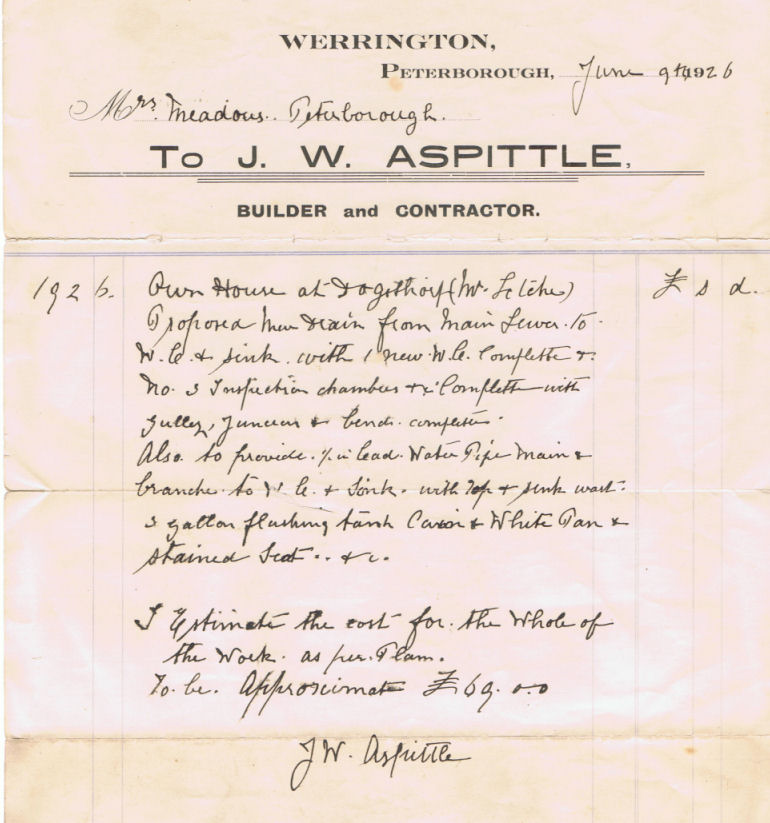 WERRINGTON,
PETERBOROUGH, June 9th 1926
Mrs. Meadows. Peterborough.
To J. W. ASPITTLE,
BUILDER and CONTRACTOR.
1926. Own House at Dogsthorp (Mr. ) £ s d.
Proposed New Drain from Main Sewer to
W.C. & sink. with 1 new W.C. Complette &
No. 3 Inspection chambers & Complette with
gulley, & bends. complete.
Also to provide. in lead. Water Pipe Main &
branche to W.C. & Sink. with Tap & sink wast.
3 gallon flushing tank & White Pan &
stained Seat .. &c.
I Estimate the cost for. the Whole of
the Work. as per. Plan.
To be. Approximate £69.0.0
J W. Aspittle